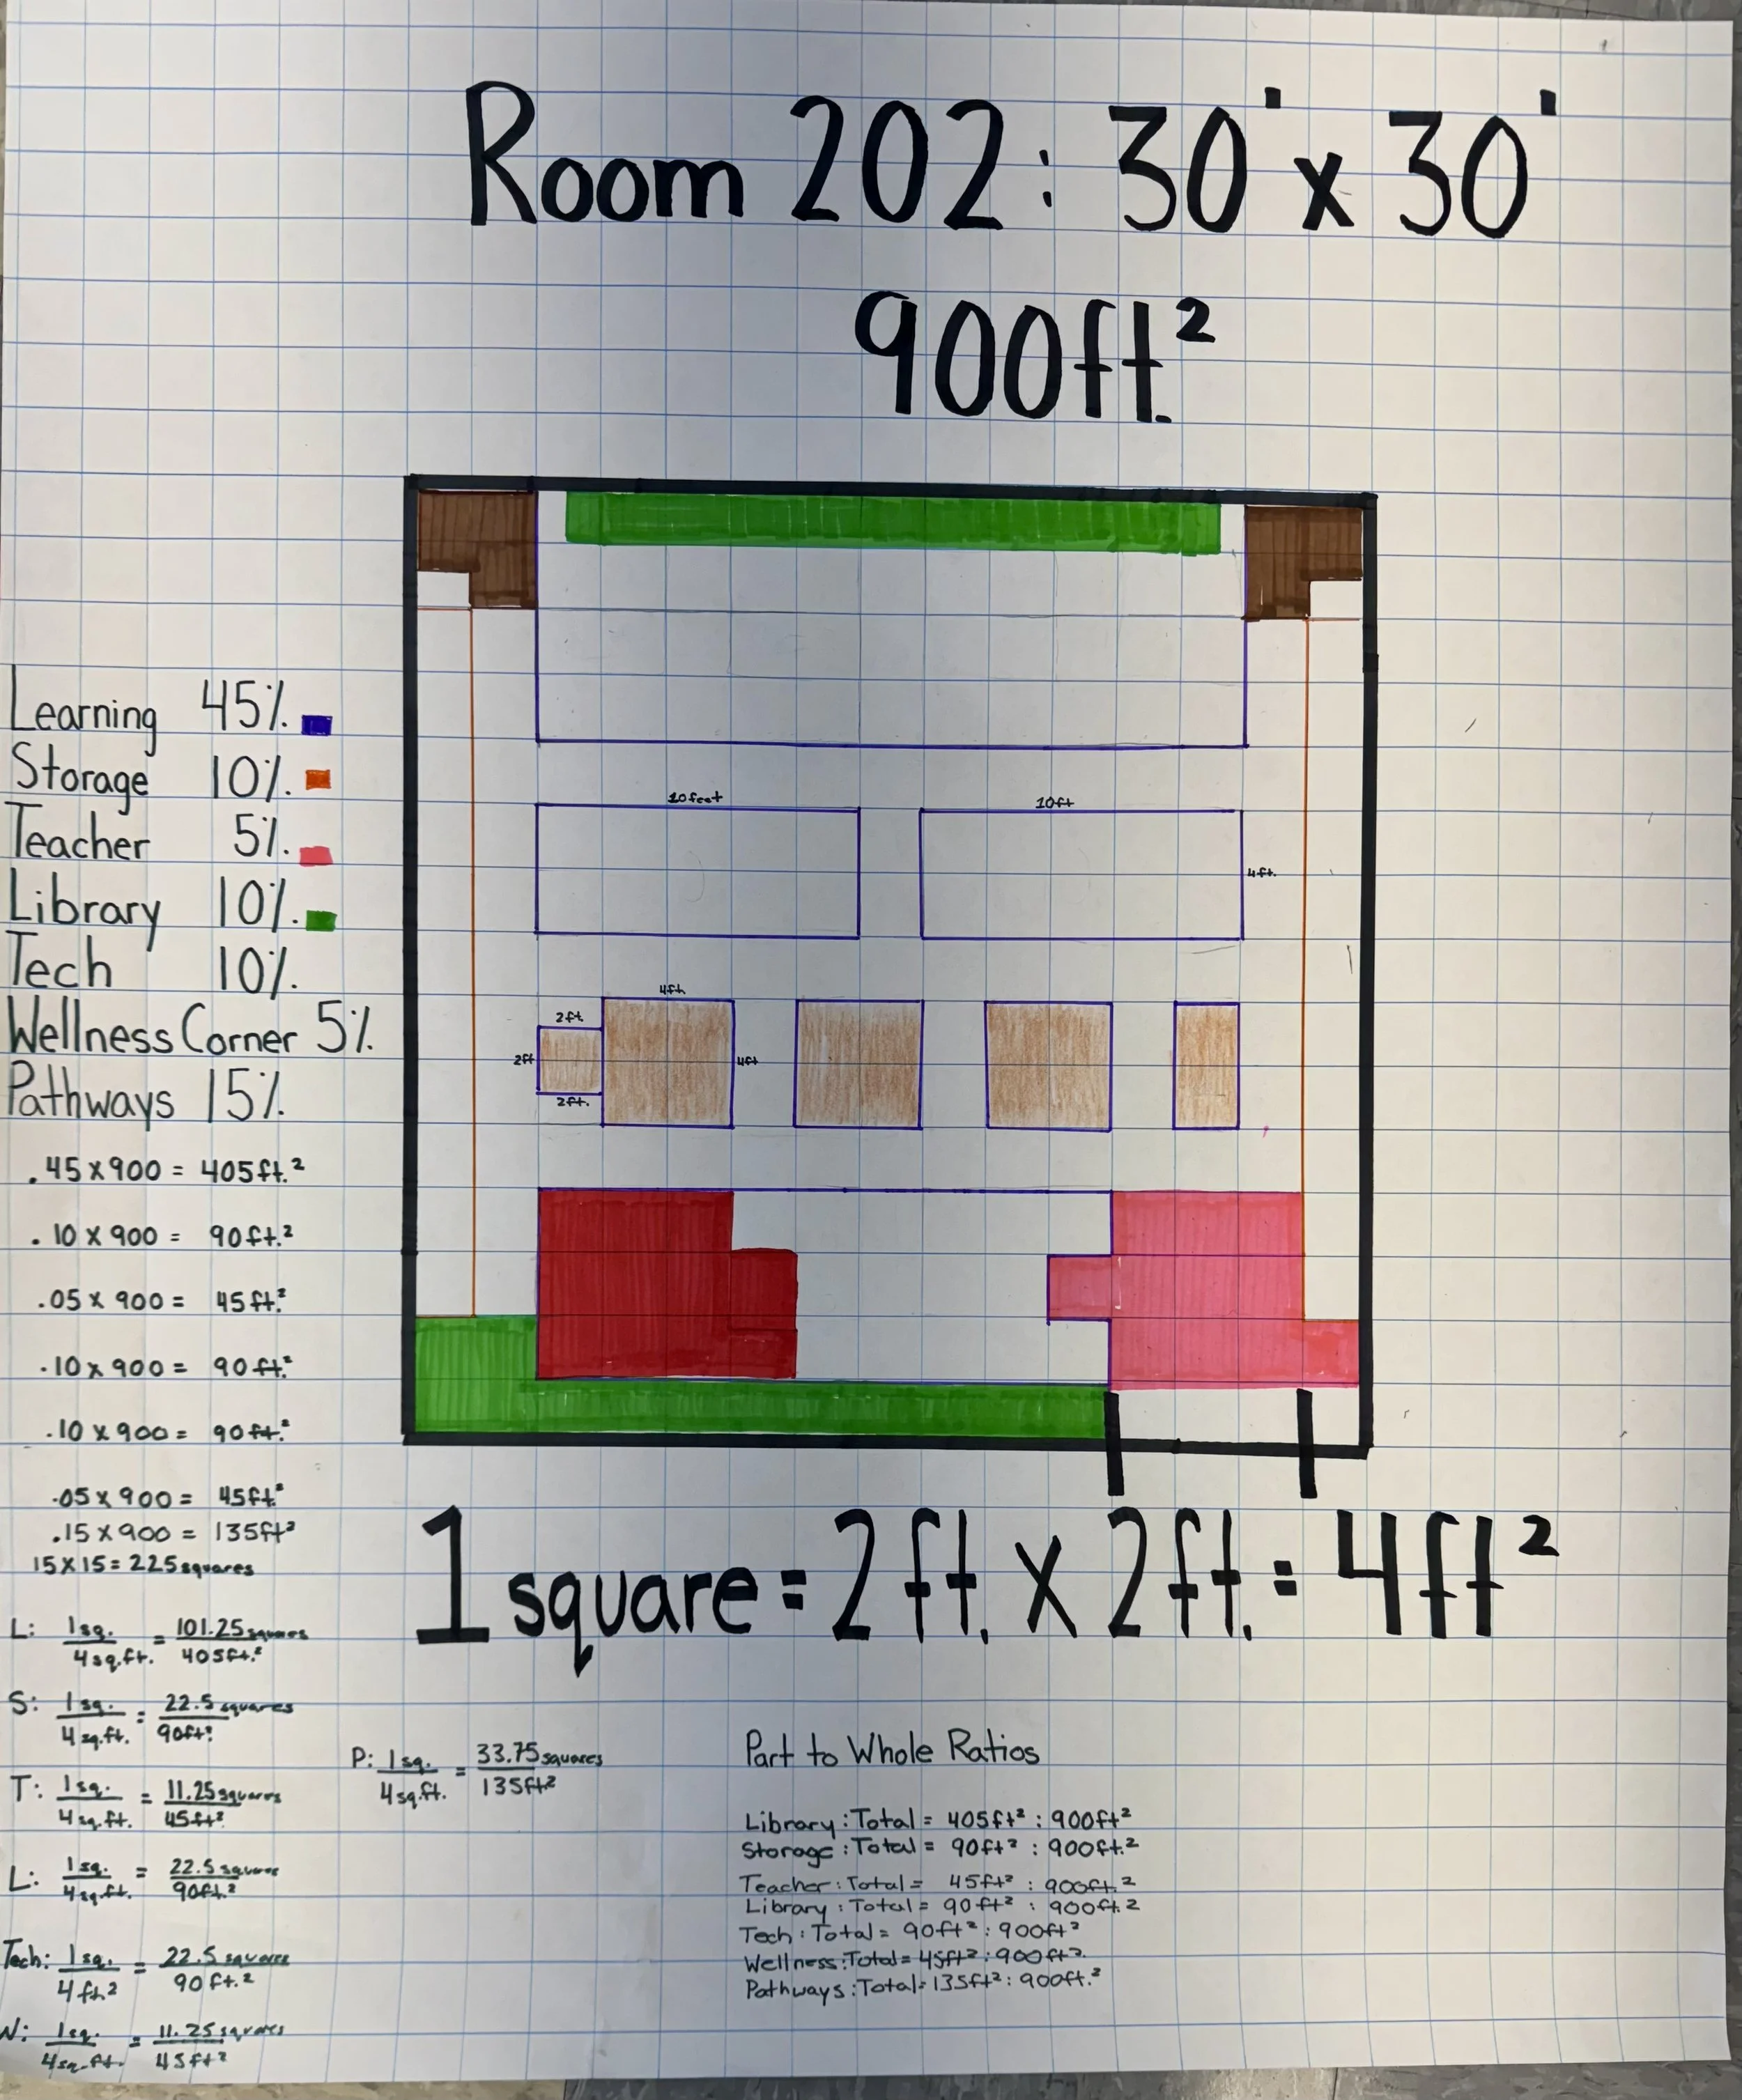 Room 202: 30' x 30'
900ft.²
Learning 45%
Storage 10%.
Teacher 5%.
Library 10%.
Tech 10%.
Wellness Corner 5%
Pathways 15%
.45 x 900 = 405ft.²
.10 x 900 = 90ft.²
.05 x 900 = 45ft.²
.10 x 900 = 90ft.²
.10 x 900 = 90ft.²
.05 x 900 = 45ft.²
.15 x 900 = 135ft²
15 x 15 = 225 squares
10 feet
10ft
4ft.
4ft.
2ft.
2ft
4ft
2ft.
1 square = 2ft. x 2ft. = 4ft²
L: 1sq. / 4sq.ft. = 101.25 squares / 405ft.²
S: 1sq. / 4sq.ft. = 22.5 squares / 90ft²
T: 1sq. / 4sq.ft. = 11.25 squares / 45ft²
L: 1sq. / 4sq.ft. = 22.5 squares / 90ft.²
Tech: 1sq. / 4ft² = 22.5 squares / 90ft.²
W: 1sq. / 4sq.ft. = 11.25 squares / 45ft²
P: 1sq. / 4sq.ft. = 33.75 squares / 135ft²
Part to Whole Ratios
Library : Total = 405ft² : 900ft²
Storage : Total = 90ft² : 900ft.²
Teacher : Total = 45ft² : 900ft.²
Library : Total = 90ft² : 900ft.²
Tech : Total = 90ft² : 900ft²
Wellness : Total = 45ft² : 900ft²
Pathways : Total = 135ft² : 900ft.²